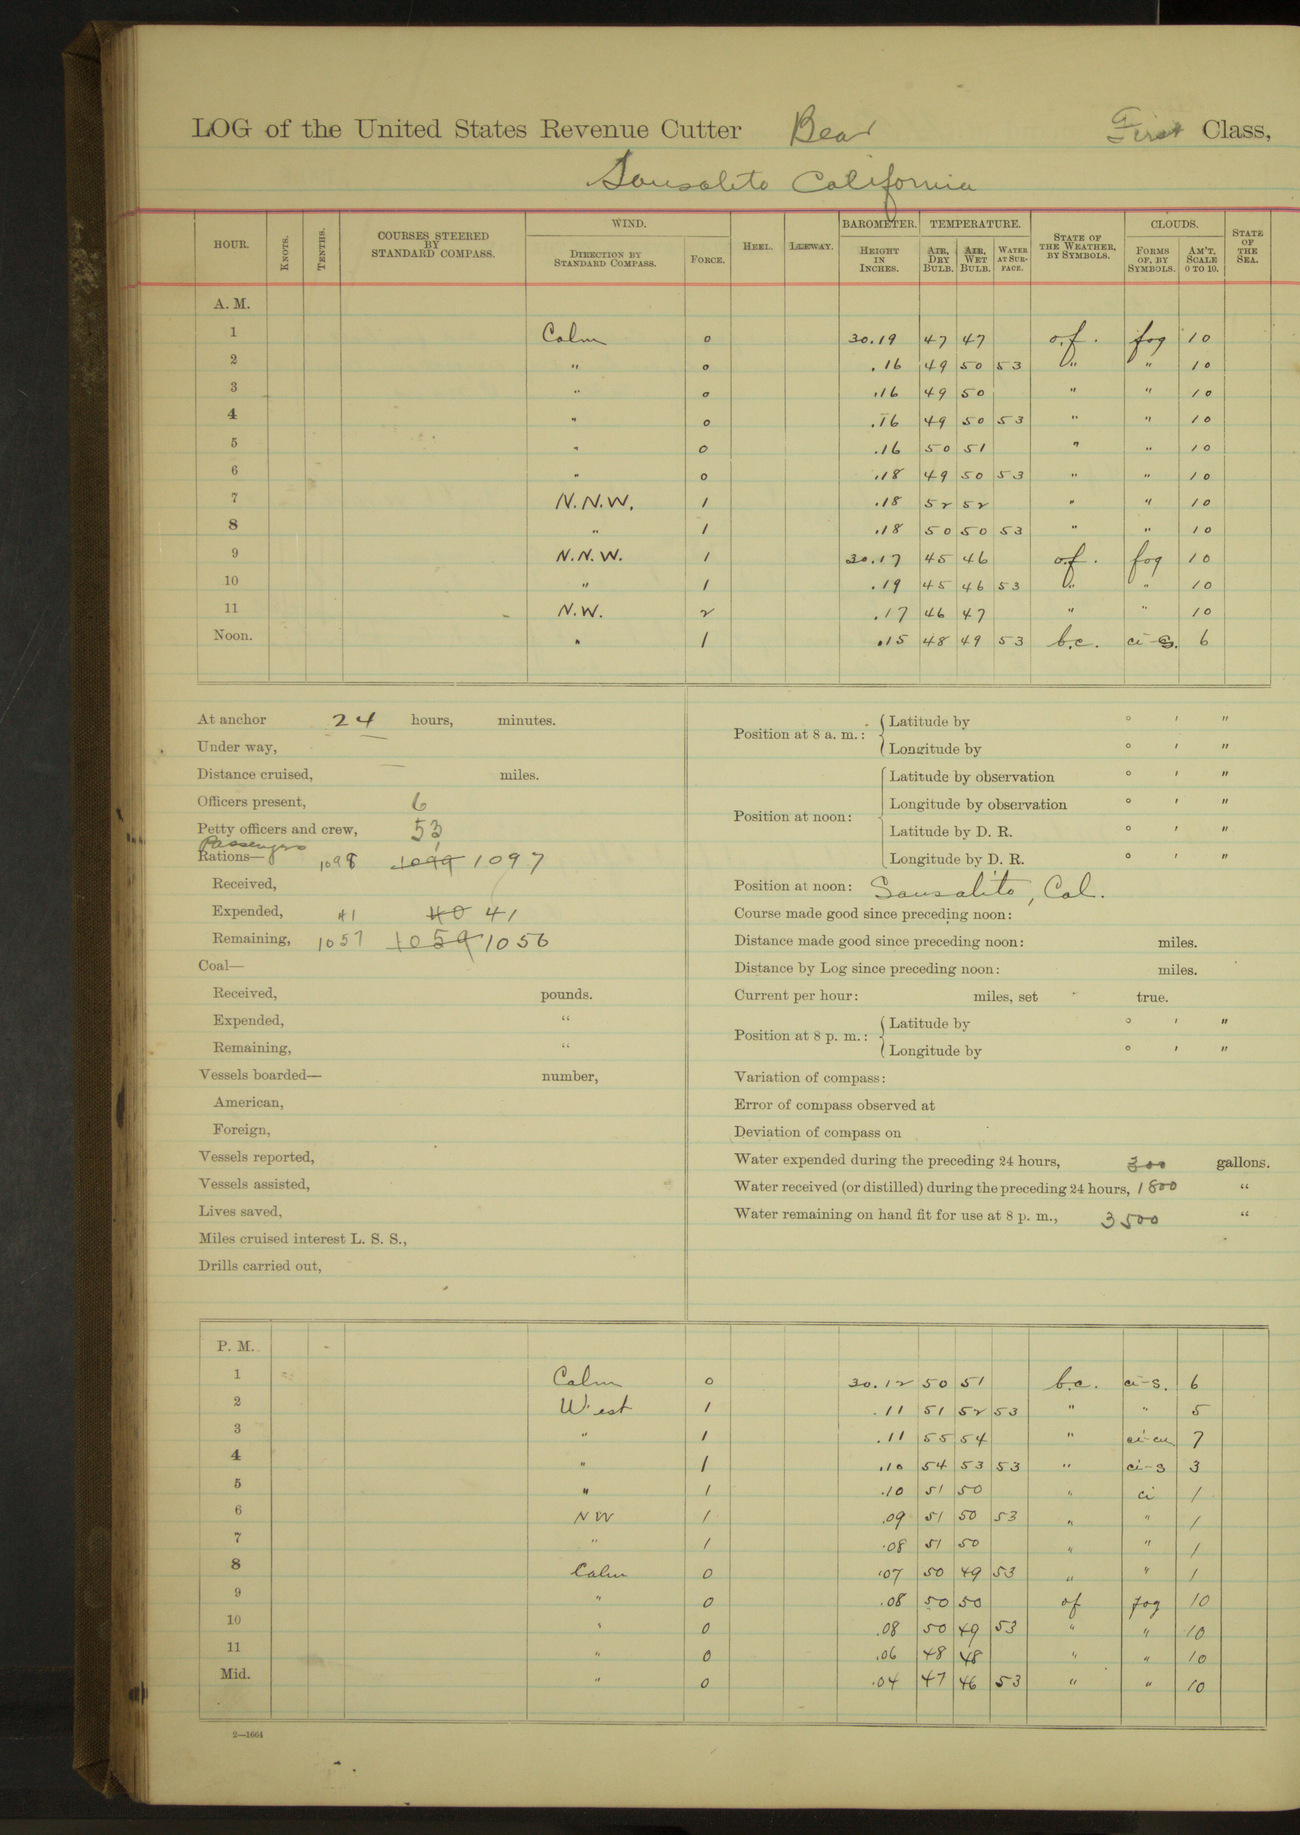 LOG of the United States Revenue Cutter Bear First Class,
Sausalito California
HOUR. KNOTS. TENTHS. COURSES STEERED BY STANDARD COMPASS. WIND. DIRECTION BY STANDARD COMPASS. FORCE. HEEL. LEEWAY. BAROMETER. HEIGHT IN INCHES. TEMPERATURE. AIR, DRY BULB. AIR, WET BULB. WATER AT SURFACE. STATE OF THE WEATHER, BY SYMBOLS. CLOUDS. FORMS OF, BY SYMBOLS. AM'T, SCALE 0 TO 10. STATE OF THE SEA.
A. M.
1 Calm 0 30.19 47 47 o.f. fog 10
2 " 0 .16 49 50 53 " " 10
3 " 0 .16 49 50 " " 10
4 " 0 .16 49 50 53 " " 10
5 " 0 .16 50 51 " " 10
6 " 0 .18 49 50 53 " " 10
7 N.N.W. 1 .18 52 52 " " 10
8 " 1 .18 50 50 53 " " 10
9 N.N.W. 1 30.17 45 46 o.f. fog 10
10 " 1 .19 45 46 53 " " 10
11 N.W. 2 .17 46 47 " " 10
Noon. " 1 .15 48 49 53 b.c. ci-s. 6
At anchor 24 hours, minutes.
Under way,
Distance cruised, miles.
Officers present, 6
Petty officers and crew, 53
Passengers 1
Rations— 1098 1099 1097
Received,
Expended, 41 40 41
Remaining, 1057 1059 1056
Coal—
Received, pounds.
Expended, "
Remaining, "
Vessels boarded— number,
American,
Foreign,
Vessels reported,
Vessels assisted,
Lives saved,
Miles cruised interest L. S. S.,
Drills carried out,
Position at 8 a. m.: Latitude by ° ′ ″
Longitude by ° ′ ″
Position at noon: Latitude by observation ° ′ ″
Longitude by observation ° ′ ″
Latitude by D. R. ° ′ ″
Longitude by D. R. ° ′ ″
Position at noon: Sausalito, Cal.
Course made good since preceding noon:
Distance made good since preceding noon: miles.
Distance by Log since preceding noon: miles.
Current per hour: miles, set true.
Position at 8 p. m.: Latitude by ° ′ ″
Longitude by ° ′ ″
Variation of compass:
Error of compass observed at
Deviation of compass on
Water expended during the preceding 24 hours, 300 gallons.
Water received (or distilled) during the preceding 24 hours, 1800 "
Water remaining on hand fit for use at 8 p. m., 3500 "
P. M.
1 Calm 0 30.12 50 51 b.c. ci-s. 6
2 West 1 .11 51 52 53 " " 5
3 " 1 .11 55 54 " ci-cu 7
4 " 1 .10 54 53 53 " ci-s 3
5 " 1 .10 51 50 " ci 1
6 NW 1 .09 51 50 53 " " 1
7 " 1 .08 51 50 " " 1
8 Calm 0 .07 50 49 53 " " 1
9 " 0 .08 50 50 of fog 10
10 " 0 .08 50 49 53 " " 10
11 " 0 .06 48 48 " " 10
Mid. " 0 .04 47 46 53 " " 10
2—1664